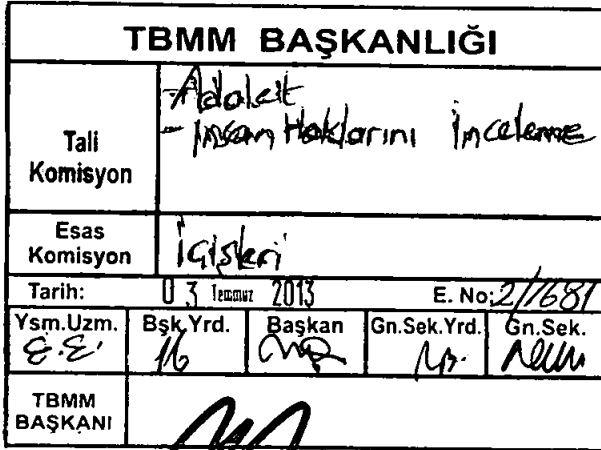 TBMM BAŞKANLIĞI
Tali Komisyon
- Adalet
- İnsan Haklarını İnceleme
Esas Komisyon
İçişleri
Tarih: 03 Temmuz 2013 E. No: 2/1681
Ysm.Uzm. Bşk.Yrd. Başkan Gn.Sek.Yrd. Gn.Sek.
TBMM BAŞKANI